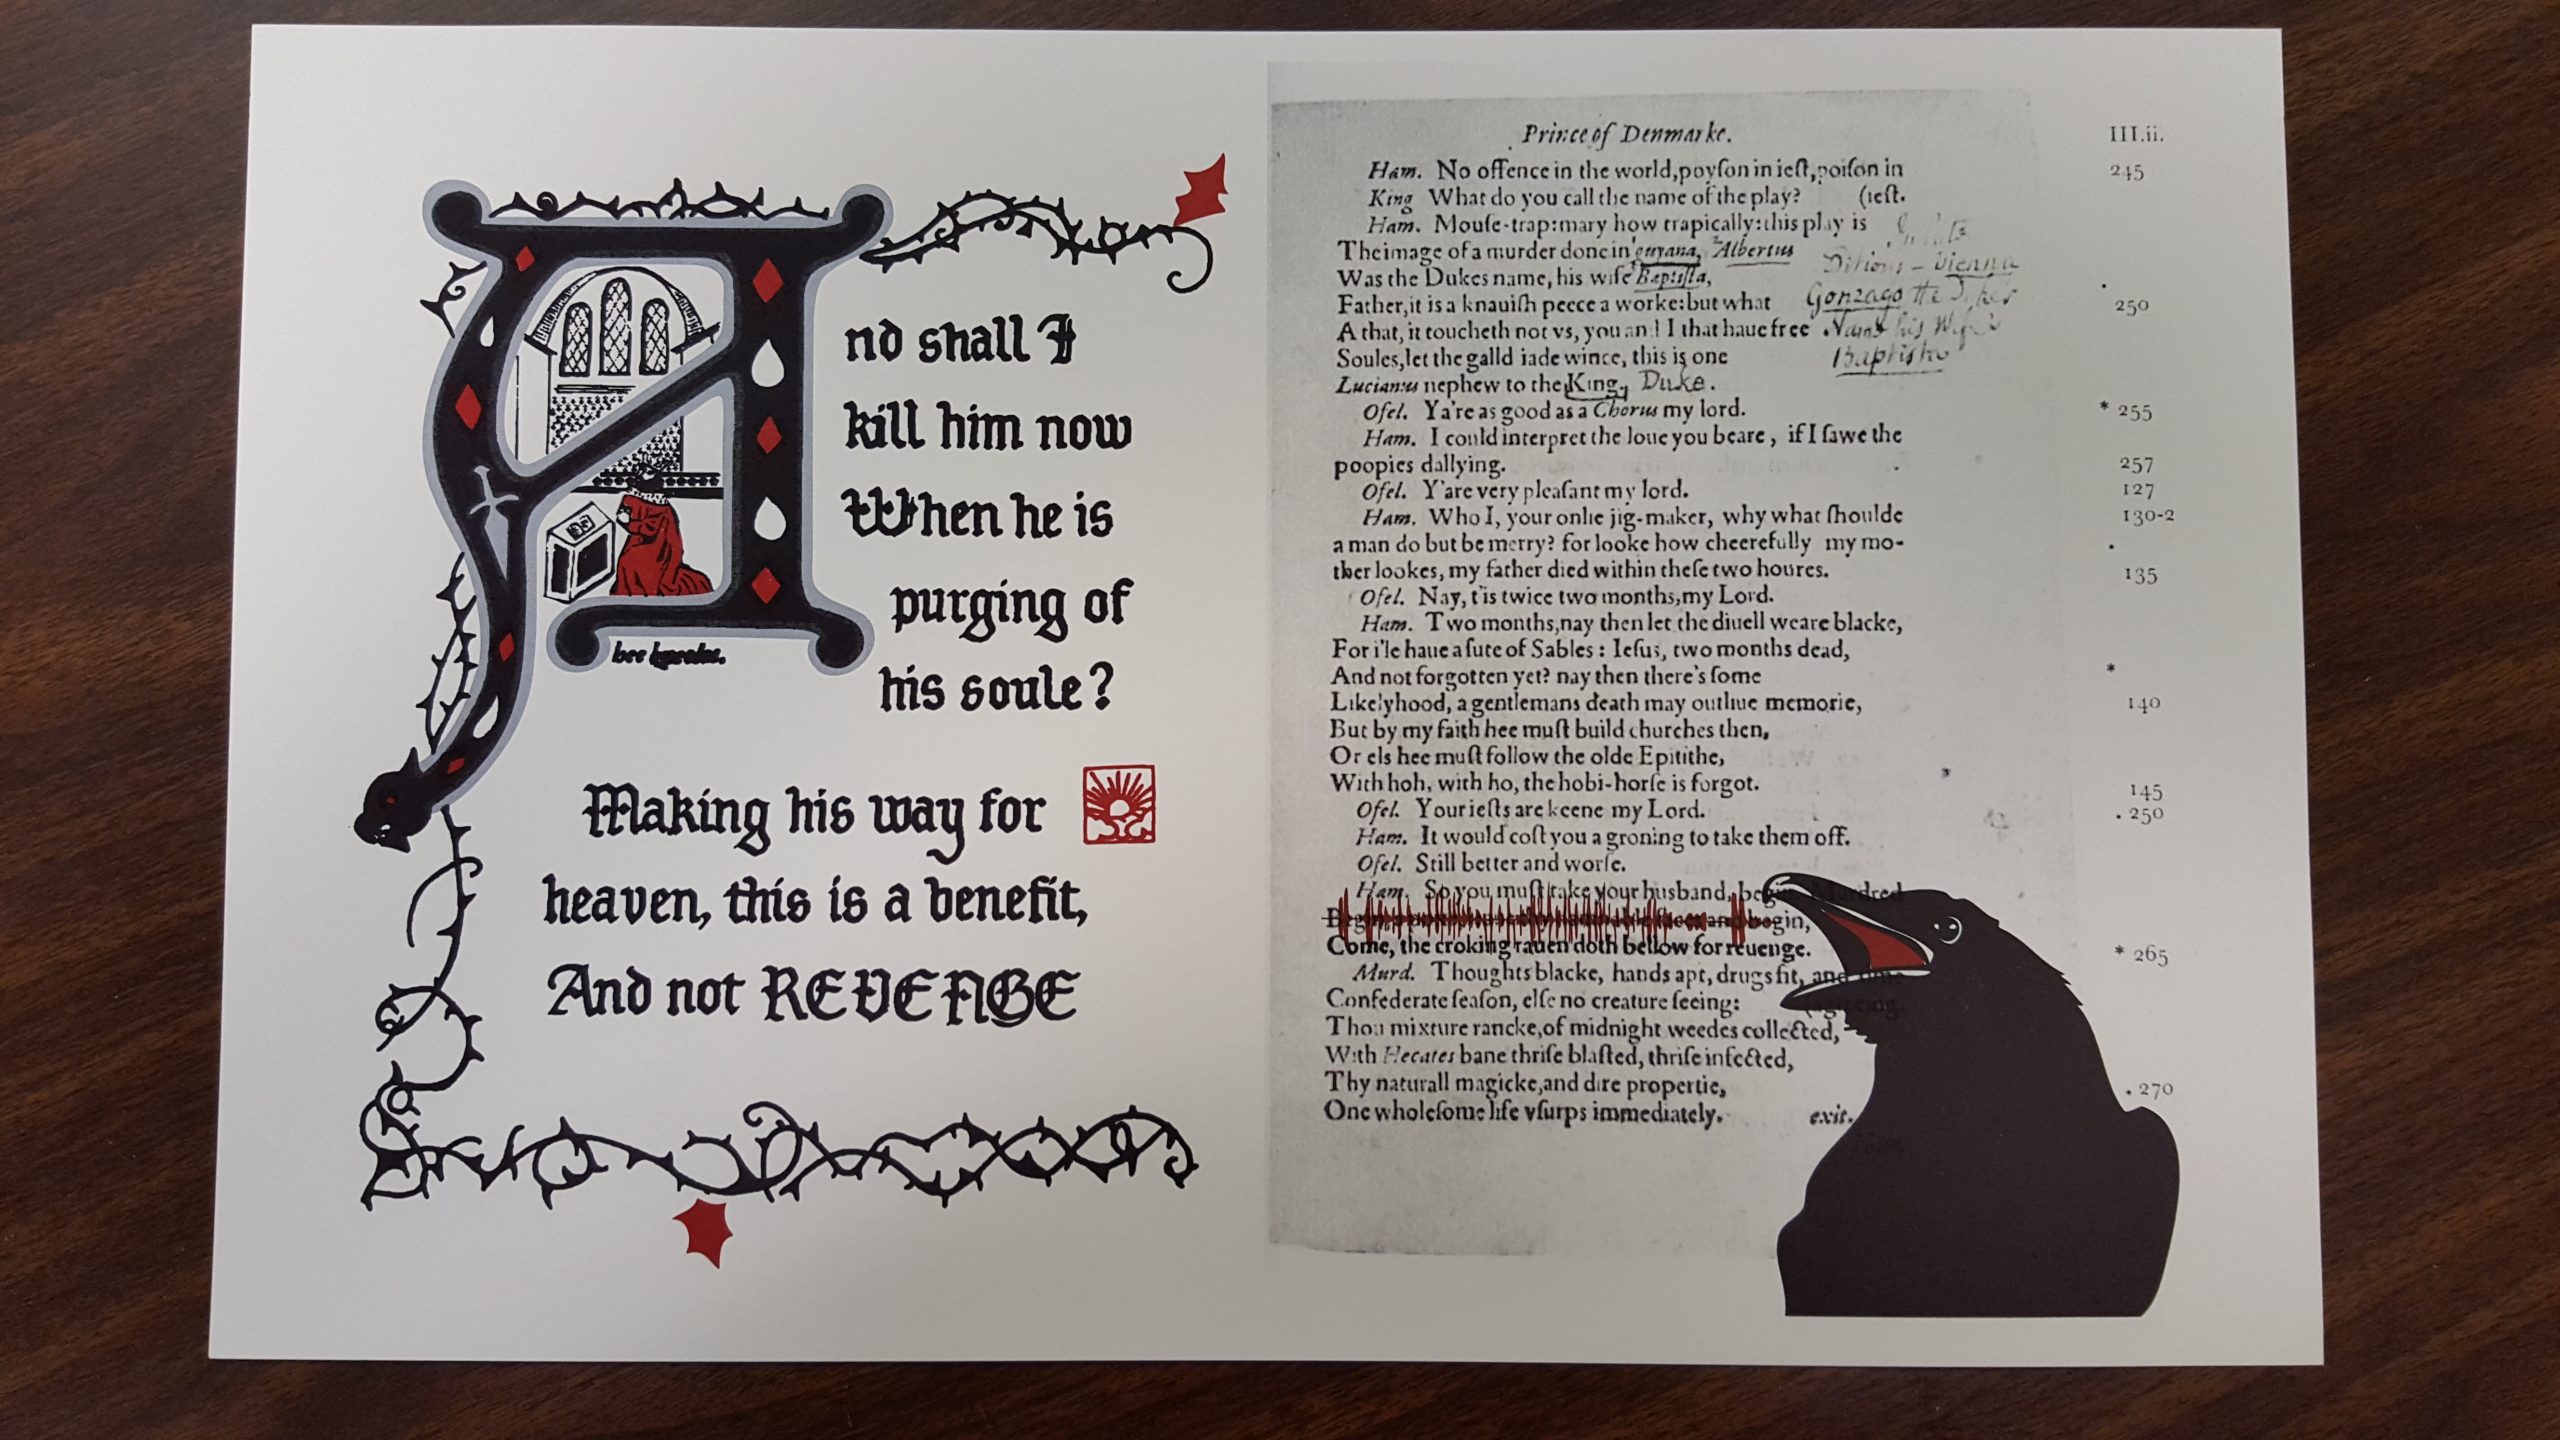 And shall I
kill him now
When he is
purging of
his soule?
hee kneeles.
Making his way for
heaven, this is a benefit,
And not REVENGE
Prince of Denmarke.
III.ii.
Ham. No offence in the world, poyſon in ieſt, poiſon in
245
King What do you call the name of the play? (ieſt.
Ham. Mouſe-trap: mary how trapically: this play is
The image of a murder done in guyana, Albertus
Vienna
Was the Dukes name, his wife Baptiſta,
Father, it is a knauiſh peece a worke: but what
Gonzago the Duke's
250
A that, it toucheth not vs, you and I that haue free
Name his Wife
Soules, let the galld iade wince, this is one
Baptista
Lucianus nephew to the King, Duke.
Ofel. Ya're as good as a Chorus my lord.
* 255
Ham. I could interpret the loue you beare, if I ſawe the
poopies dallying.
257
Ofel. Y'are very pleaſant my lord.
127
Ham. Who I, your onlie jig-maker, why what ſhoulde
130-2
a man do but be merry? for looke how cheerefully my mo-
ther lookes, my father died within theſe two houres.
135
Ofel. Nay, t'is twice two months, my Lord.
Ham. Two months, nay then let the diuell weare blacke,
For i'le haue a ſute of Sables: Ieſus, two months dead,
And not forgotten yet? nay then there's ſome
*
Likelyhood, a gentlemans death may outliue memorie,
140
But by my faith hee muſt build churches then,
Or els hee muſt follow the olde Epitithe,
With hoh, with ho, the hobi-horſe is forgot.
145
Ofel. Your ieſts are keene my Lord.
. 250
Ham. It would coſt you a groning to take them off.
Ofel. Still better and worſe.
Ham. So you muſt take your husband, begin. Murdred
Begin, and begin,
Come, the croking rauen doth bellow for reuenge.
* 265
Murd. Thoughts blacke, hands apt, drugs fit, and time
Confederate ſeaſon, elſe no creature ſeeing: (agreeing.
Thou mixture rancke, of midnight weedes collected,
With Hecates bane thriſe blaſted, thriſe infected,
Thy naturall magicke, and dire propertie,
. 270
One wholeſome life vſurps immediately. exit.